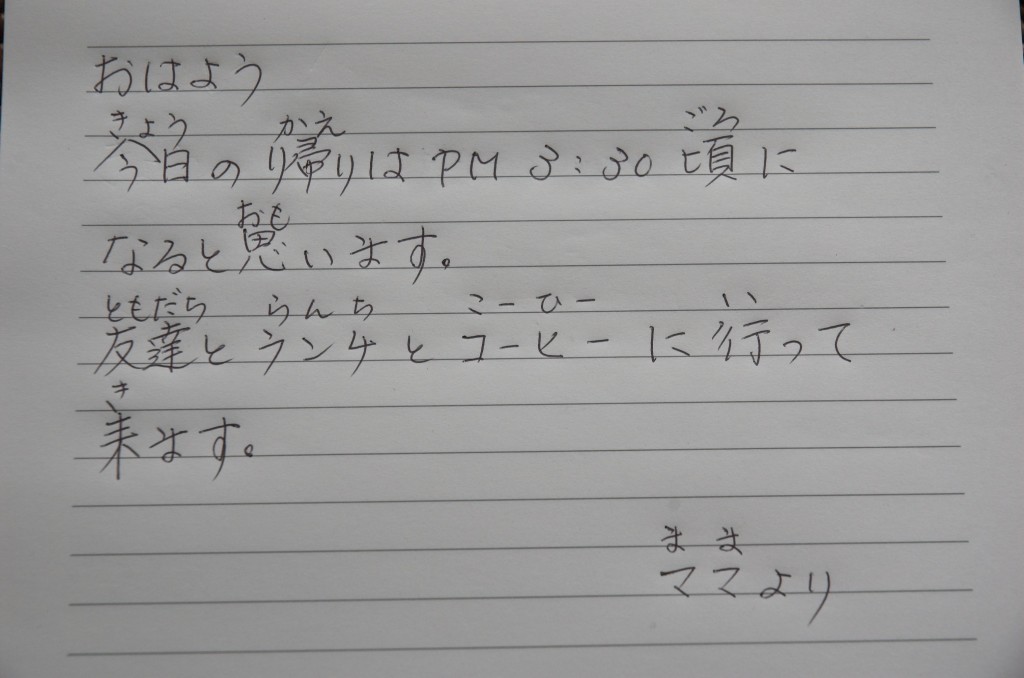 おはよう
きょう かえ ごろ
今日の帰りはPM 3:30 頃に
おも
なると思います。
ともだち らんち こーひー い
友達とランチとコーヒーに行って
き
来ます。
まま
ママより